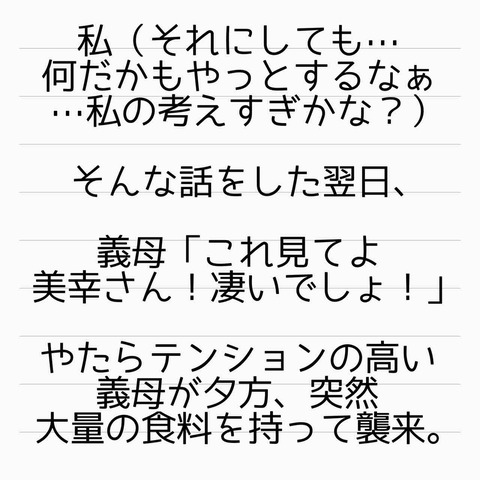 私（それにしても…
何だかもやっとするなぁ
…私の考えすぎかな？）
そんな話をした翌日、
義母「これ見てよ
美幸さん！凄いでしょ！」
やたらテンションの高い
義母が夕方、突然
大量の食料を持って襲来。